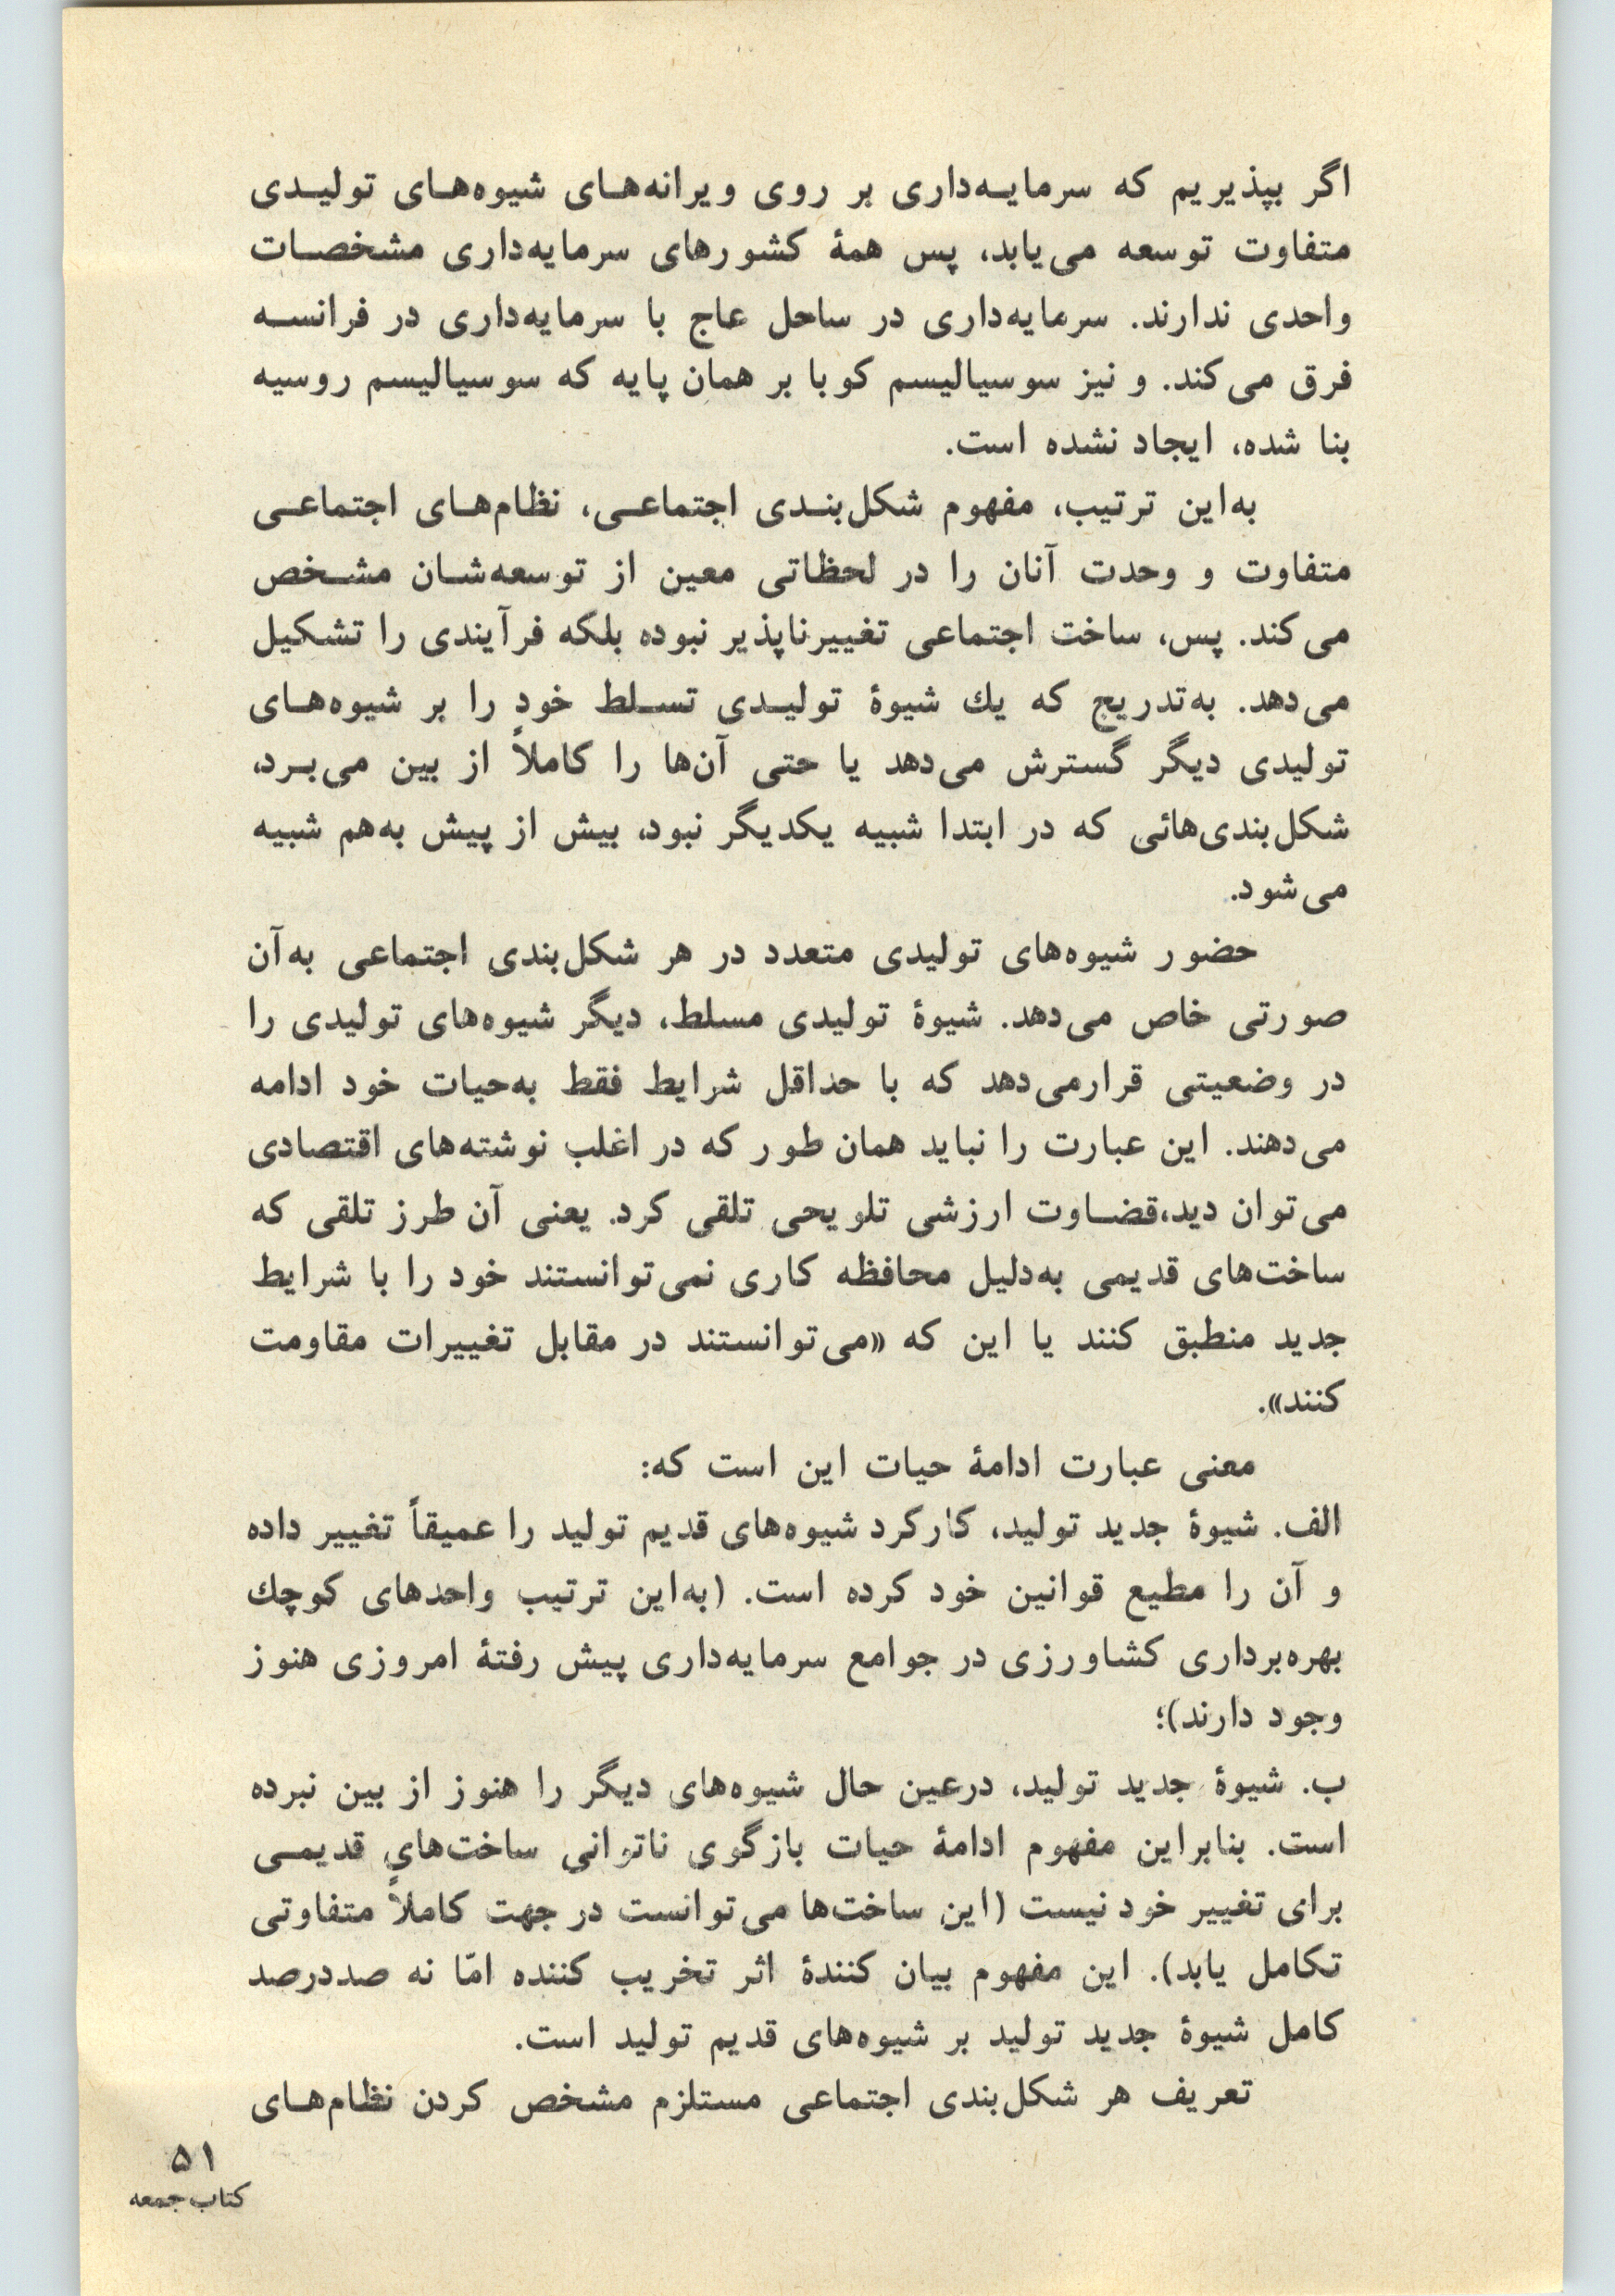 اگر بپذیریم که سرمایه‌داری بر روی ویرانه‌های شیوه‌های تولیدی
متفاوت توسعه می‌یابد، پس همهٔ کشورهای سرمایه‌داری مشخصات
واحدی ندارند. سرمایه‌داری در ساحل عاج با سرمایه‌داری در فرانسه
فرق می‌کند. و نیز سوسیالیسم کوبا بر همان پایه که سوسیالیسم روسیه
بنا شده، ایجاد نشده است.
به‌این ترتیب، مفهوم شکل‌بندی اجتماعی، نظام‌های اجتماعی
متفاوت و وحدت آنان را در لحظاتی معین از توسعه‌شان مشخص
می‌کند. پس، ساخت اجتماعی تغییرناپذیر نبوده بلکه فرآیندی را تشکیل
می‌دهد. به‌تدریج که یك شیوهٔ تولیدی تسلط خود را بر شیوه‌های
تولیدی دیگر گسترش می‌دهد یا حتی آن‌ها را کاملاً از بین می‌برد،
شکل‌بندی‌هائی که در ابتدا شبیه یکدیگر نبود، بیش از پیش به‌هم شبیه
می‌شود.
حضور شیوه‌های تولیدی متعدد در هر شکل‌بندی اجتماعی به‌آن
صورتی خاص می‌دهد. شیوهٔ تولیدی مسلط، دیگر شیوه‌های تولیدی را
در وضعیتی قرارمی‌دهد که با حداقل شرایط فقط به‌حیات خود ادامه
می‌دهند. این عبارت را نباید همان طور که در اغلب نوشته‌های اقتصادی
می‌توان دید،قضاوت ارزشی تلویحی تلقی کرد. یعنی آن طرز تلقی که
ساخت‌های قدیمی به‌دلیل محافظه کاری نمی‌توانستند خود را با شرایط
جدید منطبق کنند یا این که «می‌توانستند در مقابل تغییرات مقاومت
کنند».
معنی عبارت ادامهٔ حیات این است که:
الف. شیوهٔ جدید تولید، کارکرد شیوه‌های قدیم تولید را عمیقاً تغییر داده
و آن را مطیع قوانین خود کرده است. (به‌این ترتیب واحدهای کوچك
بهره‌برداری کشاورزی در جوامع سرمایه‌داری پیش رفتهٔ امروزی هنوز
وجود دارند)؛
ب. شیوهٔ جدید تولید، درعین حال شیوه‌های دیگر را هنوز از بین نبرده
است. بنابراین مفهوم ادامهٔ حیات بازگوی ناتوانی ساخت‌های قدیمی
برای تغییر خود نیست (این ساخت‌ها می‌توانست در جهت کاملاً متفاوتی
تکامل یابد). این مفهوم بیان کنندهٔ اثر تخریب کننده امّا نه صددرصد
کامل شیوهٔ جدید تولید بر شیوه‌های قدیم تولید است.
تعریف هر شکل‌بندی اجتماعی مستلزم مشخص کردن نظام‌های
۵۱
کتاب جمعه